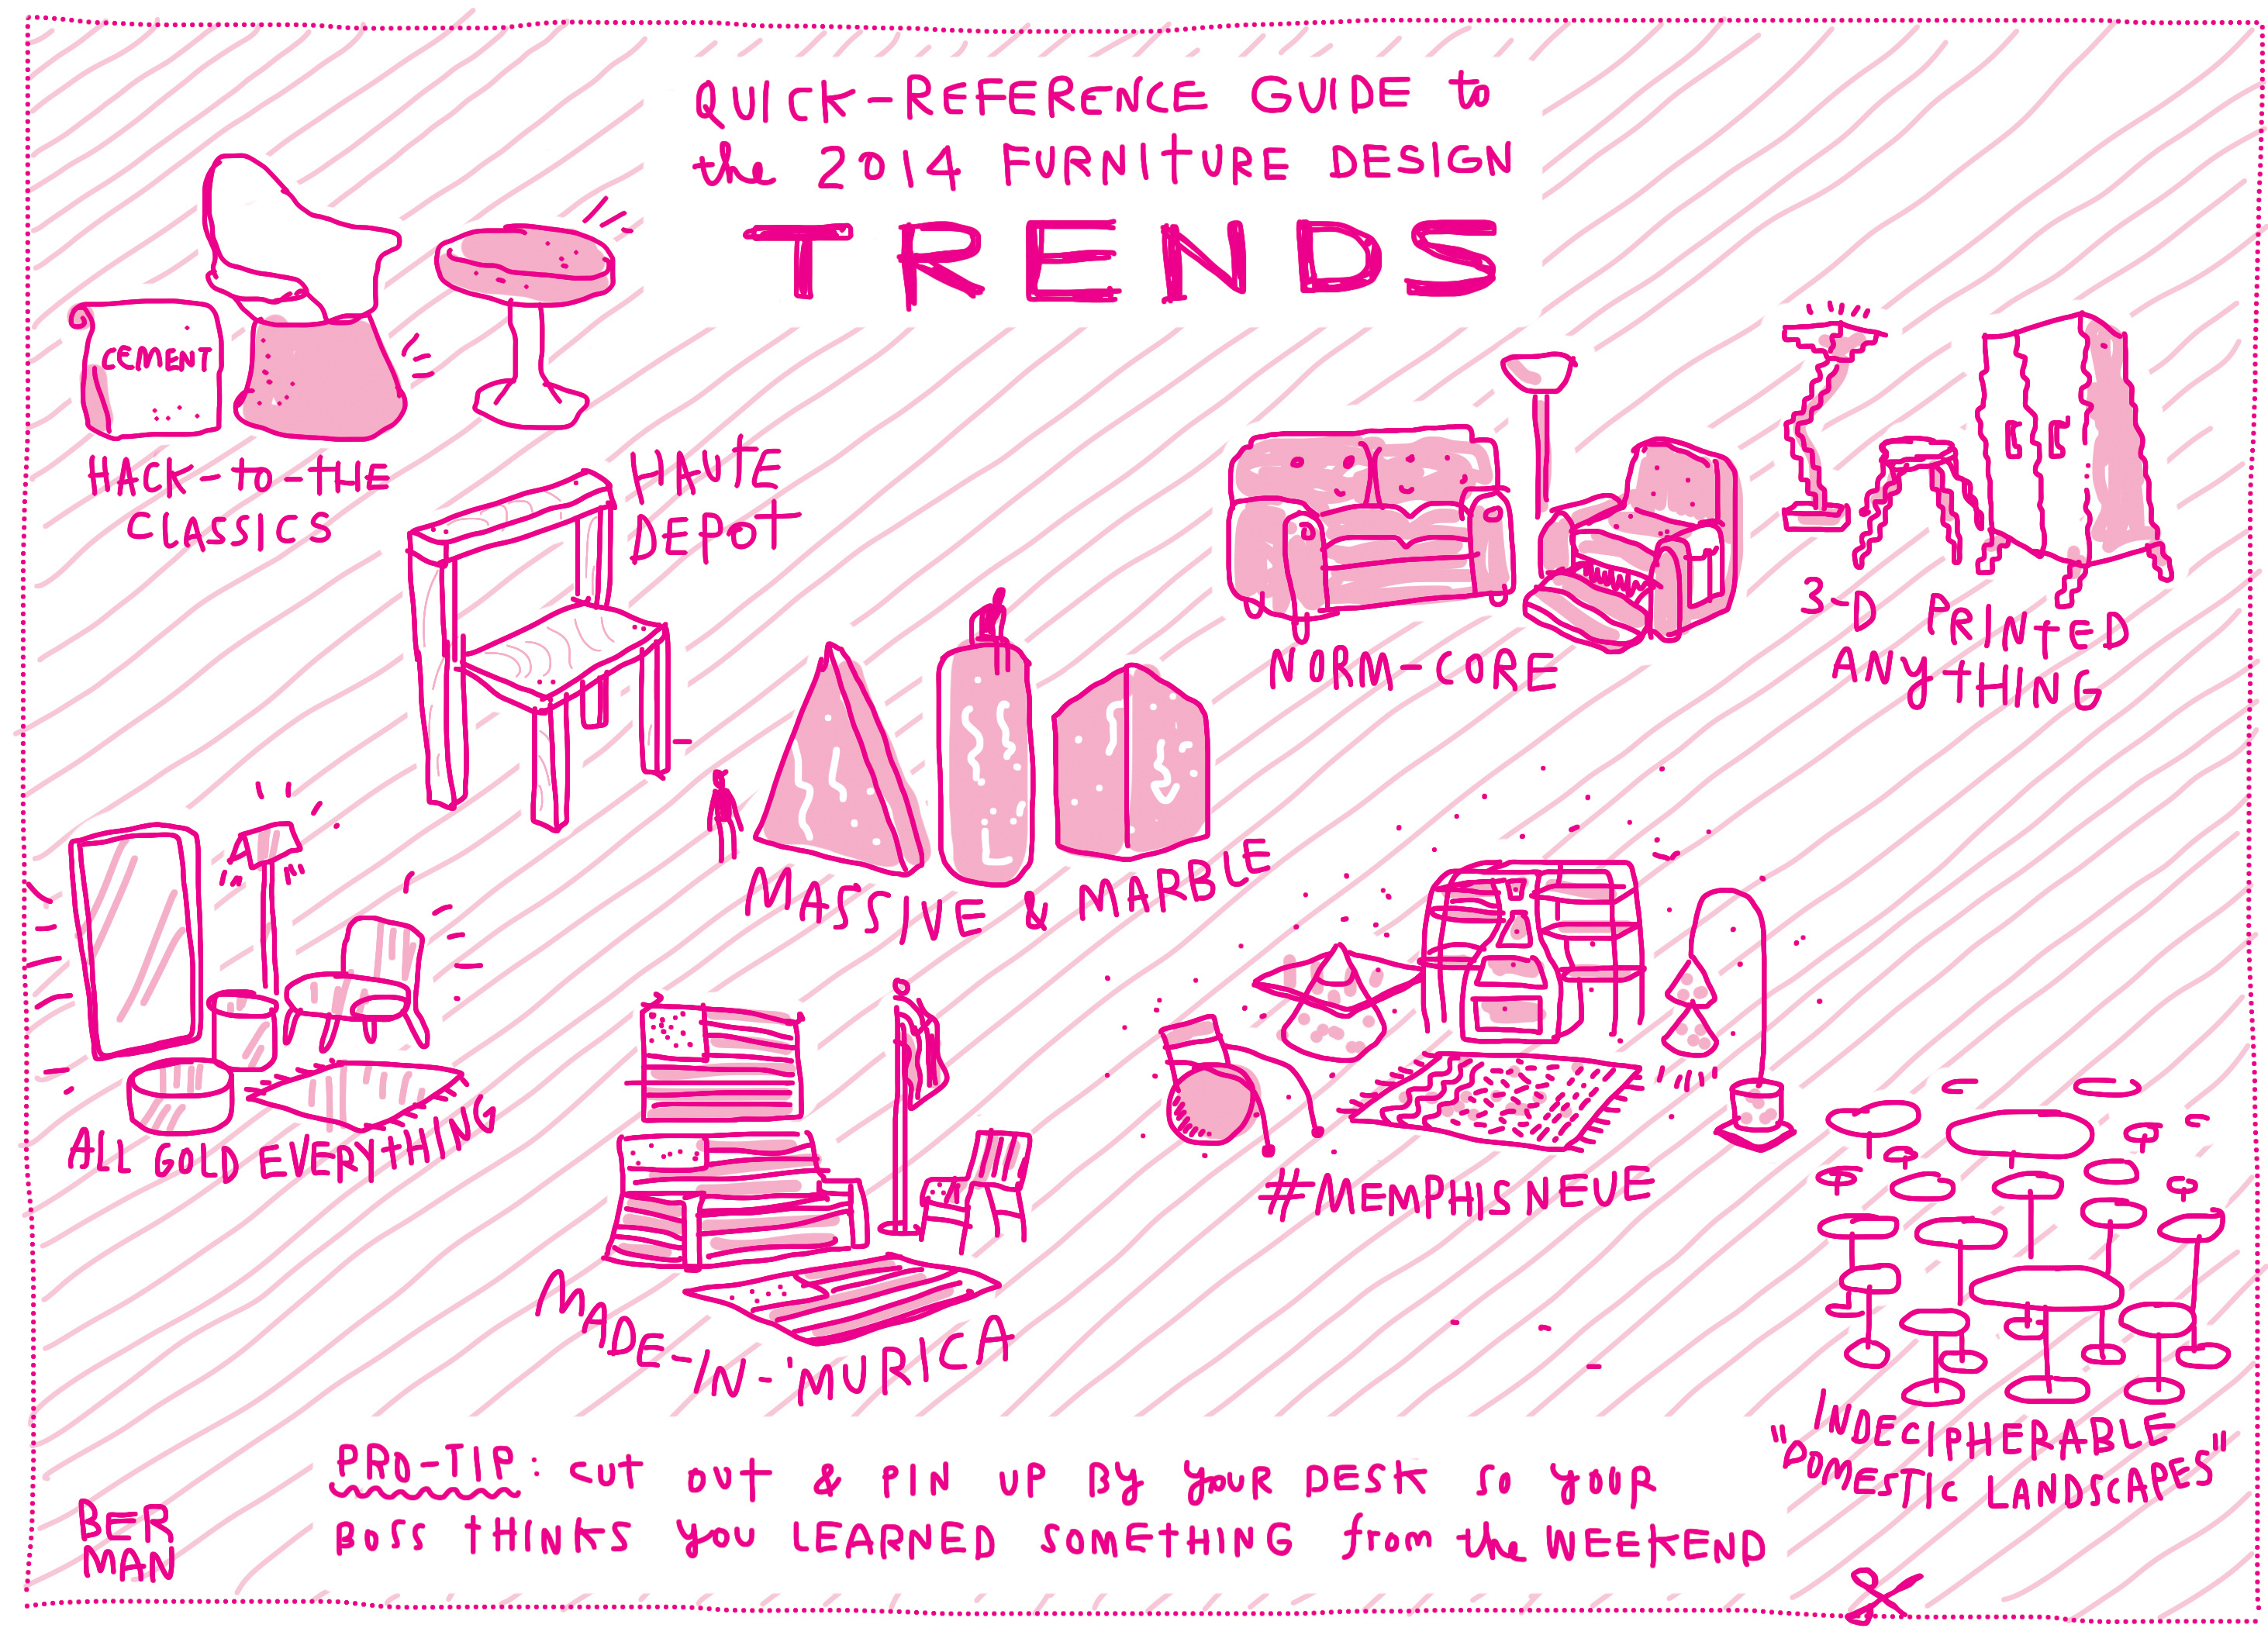 QUICK-REFERENCE GUIDE to
the 2014 FURNITURE DESIGN
TRENDS
CEMENT
HACK-to-tHE
CLASSICS
HAUtE
DEPOt
NORM-CORE
3-D PRINtED
ANytHING
MASSIVE & MARBLE
ALL GOLD EVERYtHING
MADE-IN-'MURICA
#MEMPHISNEUE
INDECIPHERABLE
"DOMESTIC LANDSCAPES"
PRO-TIP: CUT OUt & PIN UP By yOUR DESK SO yOUR
BOSS tHINKS yOU LEARNED SOMEtHING from the WEEKEND
BER
MAN